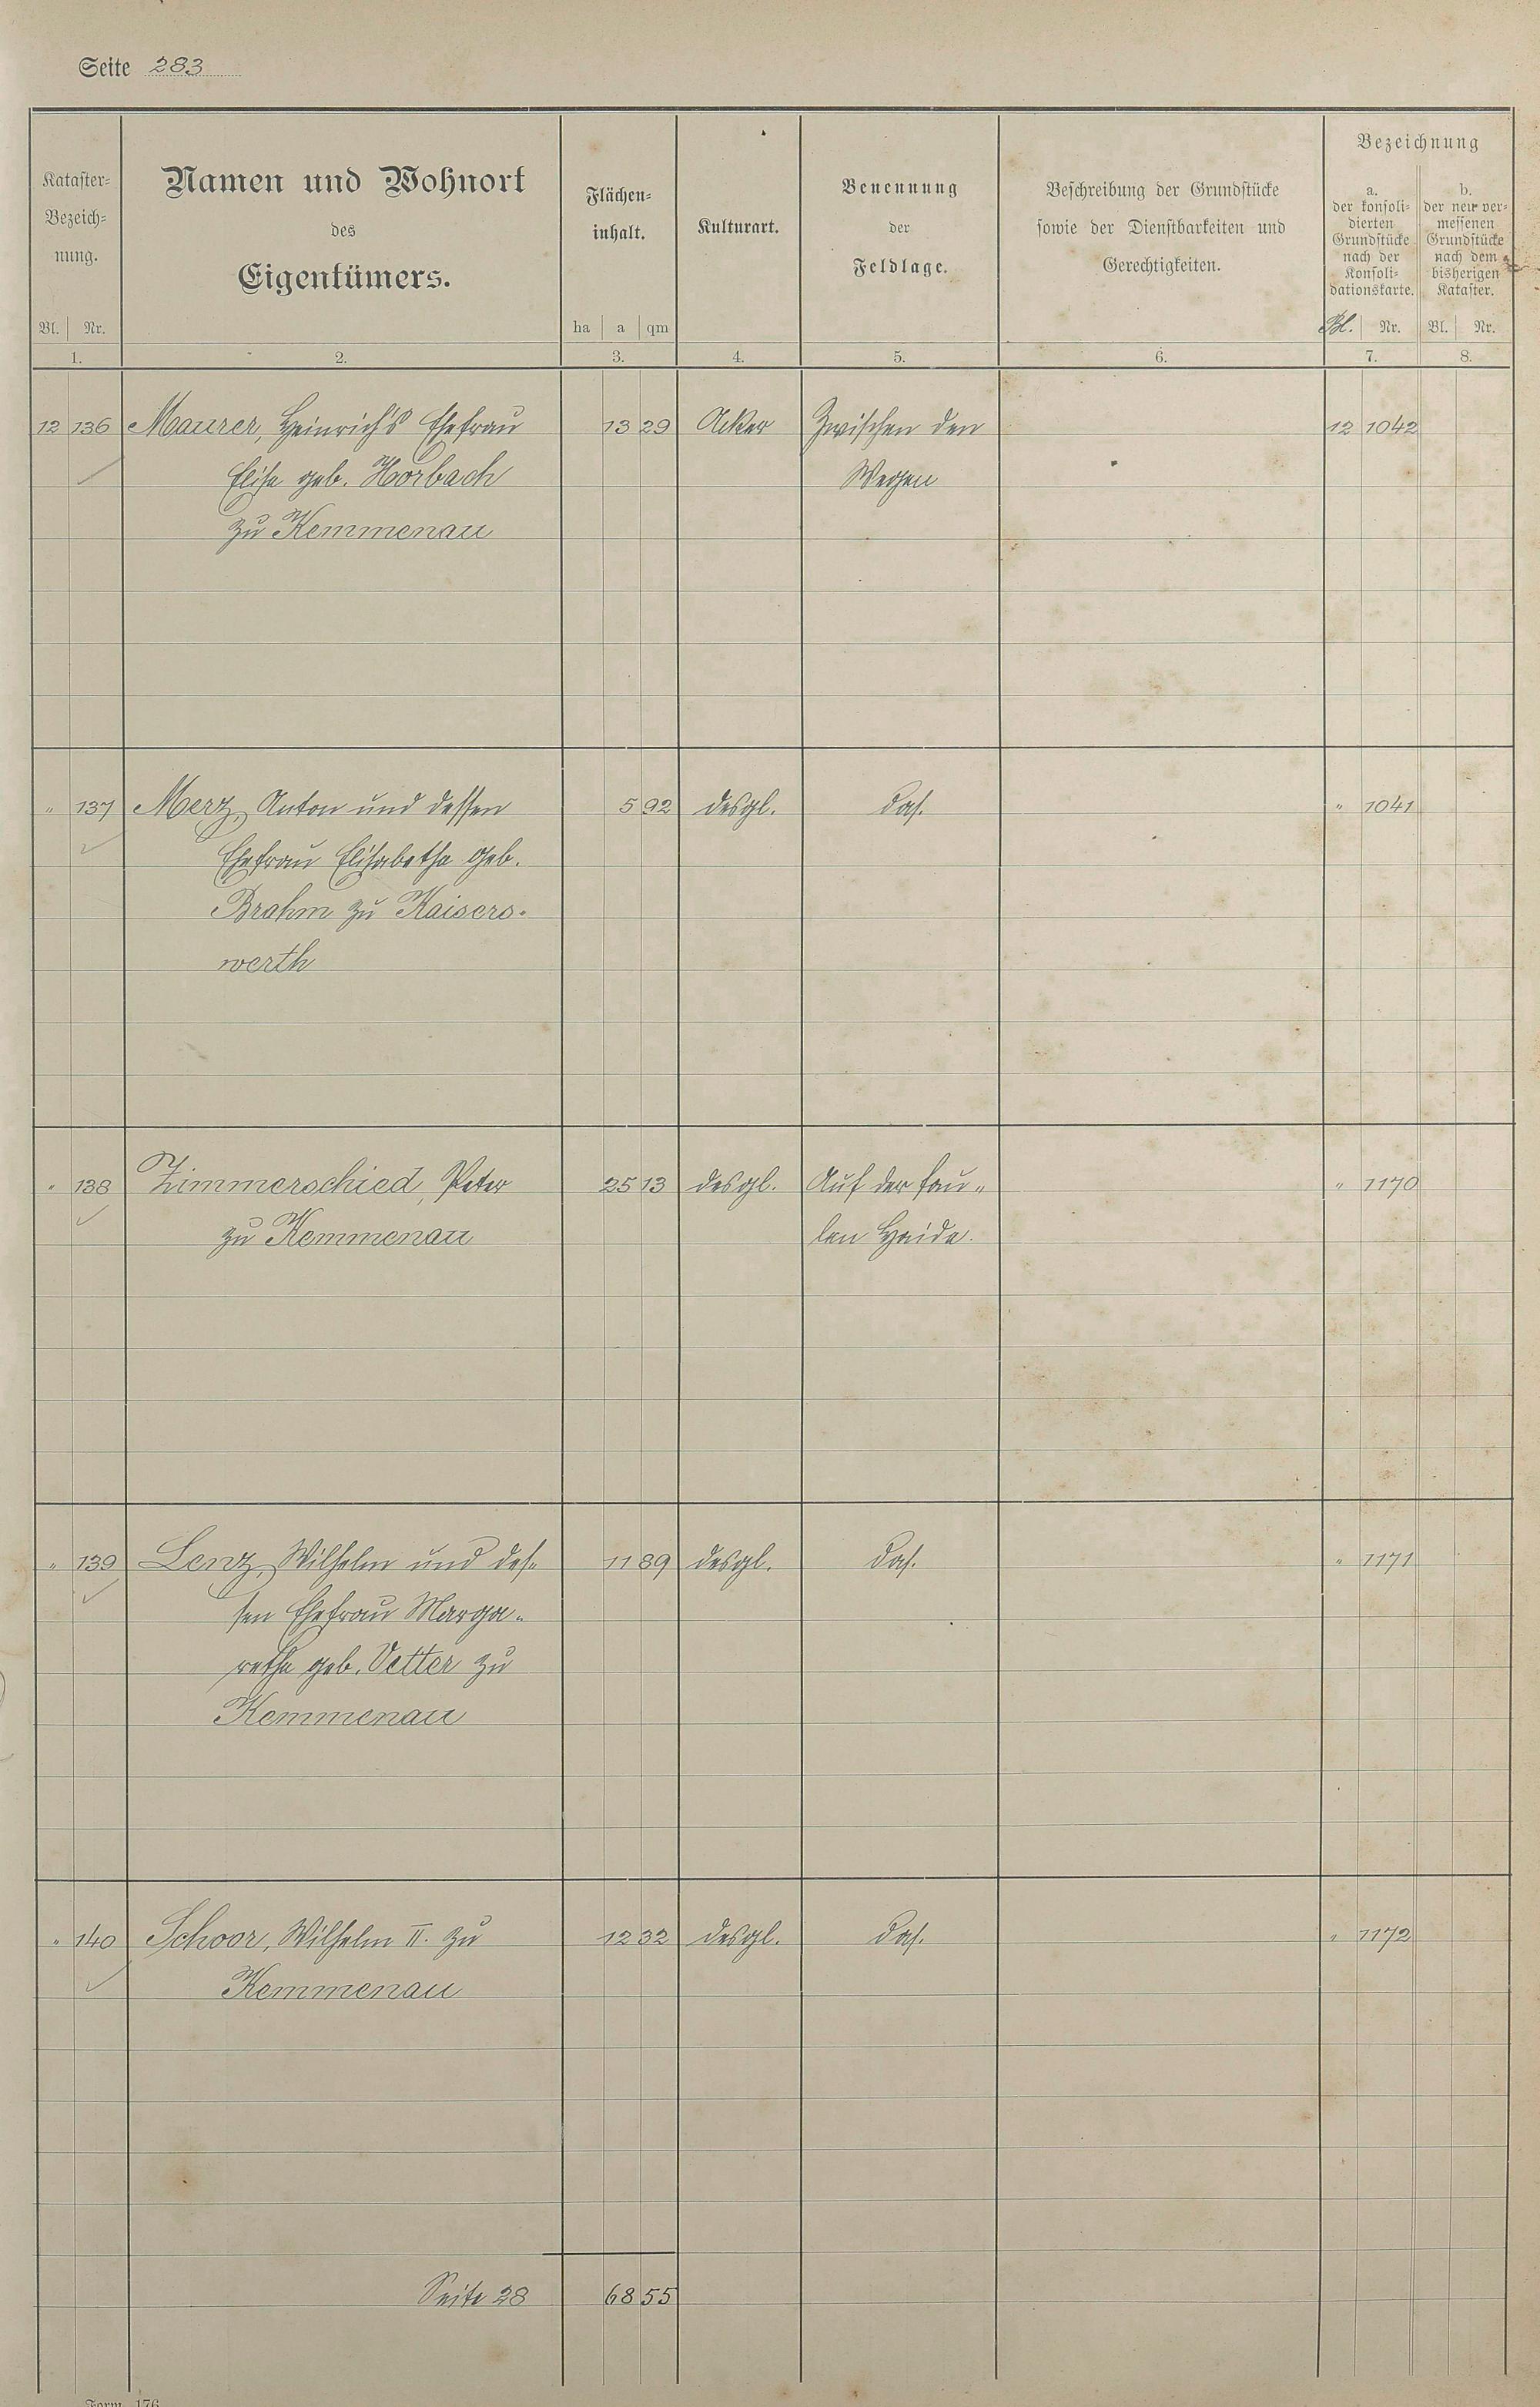 Seite 283
Kataster-
Bezeich-
nung.
Bl. Nr.
1.
Namen und Wohnort
des
Eigentümers.
2.
Flächen-
inhalt.
ha a qm
3.
Kulturart.
4.
Benennung
der
Feldlage.
5.
Beschreibung der Grundstücke
sowie der Dienstbarkeiten und
Gerechtigkeiten.
6.
Bezeichnung
a.
der konsoli-
dierten
Grundstücke
nach der
Konsoli-
dationskarte.
Bl. Nr.
7.
b.
der neu ver-
messenen
Grundstücke
nach dem
bisherigen
Kataster.
Bl. Nr.
8.
12 136 Maurer, Heinrich's Ehefrau 13 29 Acker Zwischen den 12 1042
Elise geb. Horbach Wegen
zu Kemmenau
" 137 Merz, Anton und dessen 5 92 desgl. das. " 1041
Ehefrau Elisabetha geb.
Brahm zu Kaisers-
werth
" 138 Zimmerschied, Peter 25 13 desgl. Auf der fau- " 1170
zu Kemmenau len Haide.
" 139 Lenz, Wilhelm und des- 11 89 desgl. das. " 1171
sen Ehefrau Marga-
retha geb. Vetter zu
Kemmenau
" 140 Schoor, Wilhelm II. zu 12 32 desgl. das. " 1172
Kemmenau
Seite 28 68 55
Form. 176